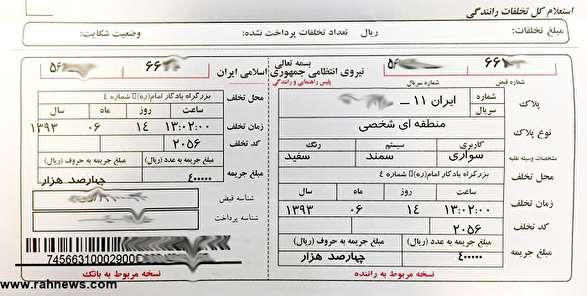 استعلام کل تخلفات رانندگی
مبلغ تخلفات: ریال تعداد تخلفات پرداخت نشده: وضعیت شکایت:
بسمه تعالی
نیروی انتظامی جمهوری اسلامی ایران
پلیس راهنمایی و رانندگی
شماره قبض
شماره سریال
پلاک
شماره
سریال
ایران ۱۱ –
نوع پلاک
منطقه ای شخصی
مشخصات وسیله نقلیه
کاربری سیستم رنگ
سواری سمند سفید
محل تخلف
بزرگراه یادگار امام(ره) شماره ٤
زمان تخلف
ساعت روز ماه سال
۱۳:۰۲:۰۰ ۱٤ ۰۶ ۱۳۹۳
کد تخلف
۲۰۵۶
مبلغ جریمه
مبلغ جریمه به عدد (ریال) مبلغ جریمه به حروف (ریال)
٤۰۰۰۰۰ چهارصد هزار
نسخه مربوط به راننده
محل تخلف
بزرگراه یادگار امام(ره) شماره ٤
زمان تخلف
ساعت روز ماه سال
۱۳:۰۲:۰۰ ۱٤ ۰۶ ۱۳۹۳
کد تخلف
۲۰۵۶
مبلغ جریمه
مبلغ جریمه به عدد (ریال) مبلغ جریمه به حروف (ریال)
٤۰۰۰۰۰ چهارصد هزار
شناسه قبض
شناسه پرداخت
74566310002900
نسخه مربوط به بانک
www.rahnews.com